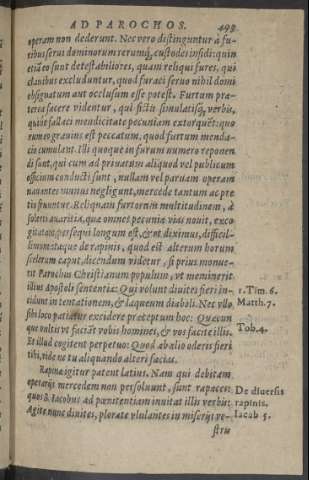 AD PAROCHOS. 493
operam non dederunt. Nec vero distinguuntur a fu-
ribus serui dominorum rerumq́; custodes infidi: quin
etiã eo sunt detestabiliores, quam reliqui fures, qui
clauibus excluduntur, quod furaci seruo nihil domi
obsignatum aut occlusum esse potest. Furtum præ-
terea facere videntur, qui fictis simulatisq́; verbis,
quiue fallaci mendicitate pecuniam extorquẽt: quo
rum eo grauius est peccatum, quod furtum menda-
cio cumulant. Illi quoque in furum numero reponen
di sunt, qui cum ad priuatum aliquod vel publicum
officium conducti sunt, nullam vel paruam operam
nauantes munus negligunt, mercede tantum ac pre
tio fruuntur. Reliquam furtorum multitudinem, à
solerti auaritia, quæ omnes pecuniæ vias nouit, exco
gitatam persequi longum est, & vt diximus, difficil-
limum: itaque de rapinis, quod est alterum horum
scelerum caput, dicendum videtur, si prius monue-
rit Parochus Christianum populum, vt meminerit
illius Apostoli sententiæ: Qui volunt diuites fieri in-
cidunt in tentationem, & laqueum diaboli. Nec vllo
sibi loco patiatur excidere præceptum hoc: Quæcun
que vultis vt faciãt vobis homines, & vos facite illis.
Et illud cogitent perpetuo: Quod ab alio oderis fieri
tibi, vide ne tu aliquando alteri facias.
Rapina igitur patent latius. Nam qui debitam
operarijs mercedem non persoluunt, sunt rapaces:
quos B. Iacobus ad pœnitentiam inuitat illis verbis:
Agite nunc diuites, plorate vlulantes in miserijs ve-
stris
1. Tim. 6.
Matth. 7.
Tob. 4.
De diuersis
rapinis.
Iacob 5.